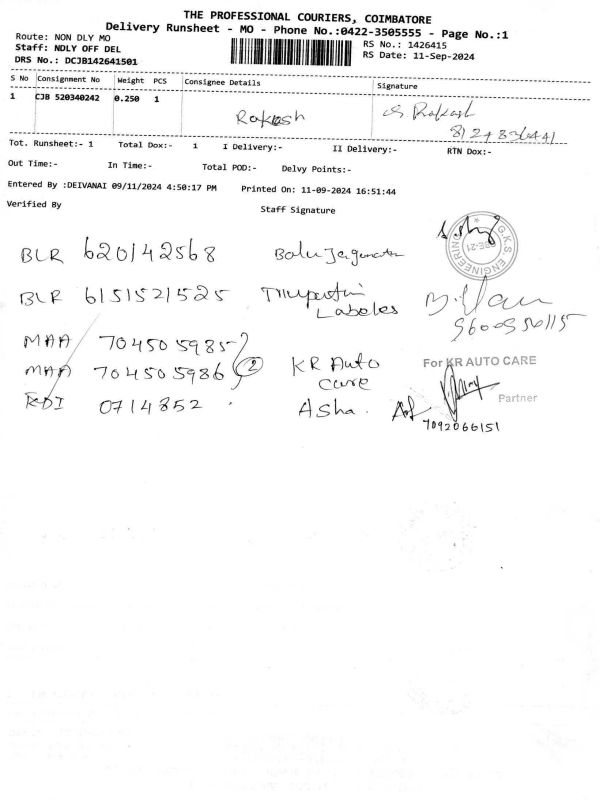 THE PROFESSIONAL COURIERS, COIMBATORE
Delivery Runsheet - MO - Phone No.:0422-3505555 - Page No.:1
Route: NON DLY MO
RS No.: 1426415
Staff: NDLY OFF DEL
RS Date: 11-Sep-2024
DRS No.: DCJB142641501
S No Consignment No Weight PCS Consignee Details Signature
1 CJB 520340242 0.250 1 Rakesh Rakesh
Tot. Runsheet:- 1 Total Dox:- 1 I Delivery:- II Delivery:- RTN Dox:-
Out Time:- In Time:- Total POD:- Delvy Points:-
Entered By :DEIVANAI 09/11/2024 4:50:17 PM Printed On: 11-09-2024 16:51:44
Verified By Staff Signature
G.K.S. ENGINEERING
BLR 620142568
BLR 6151521525 Labels
9600556115
MAA 7045059857
MAA 704505986 2 KR Auto
care
For KR AUTO CARE
Partner
KDI 0714852 Asha.
7092066151